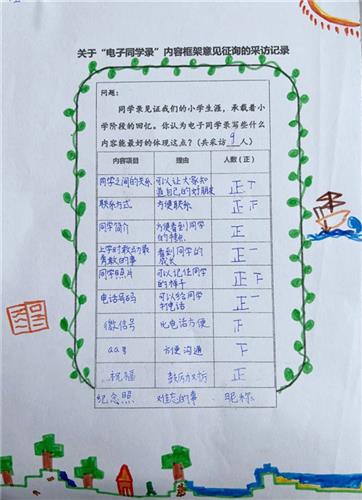 关于“电子同学录”内容框架意见征询的采访记录
问题：
同学录见证我们的小学生涯，承载者小
学阶段的回忆。你认为电子同学录写些什么
内容能最好的体现这点？（共采访9人）
内容项目 理由 人数（正）
同学之间的关系 可以让大家知道自己的好朋友 正下
联系方式 方便联系 正下
同学简介 方便看到同学的特点 正
上学时救 最勇敢的事 看到同学的成长 正一
同学照片 可以记住同学的样子 正下
电话号码 可以给同学打电话 正一
微信号 比电话方便 下
qq号 方便沟通 下
祝福 鼓历 正
纪念照 难忘的事 昵称